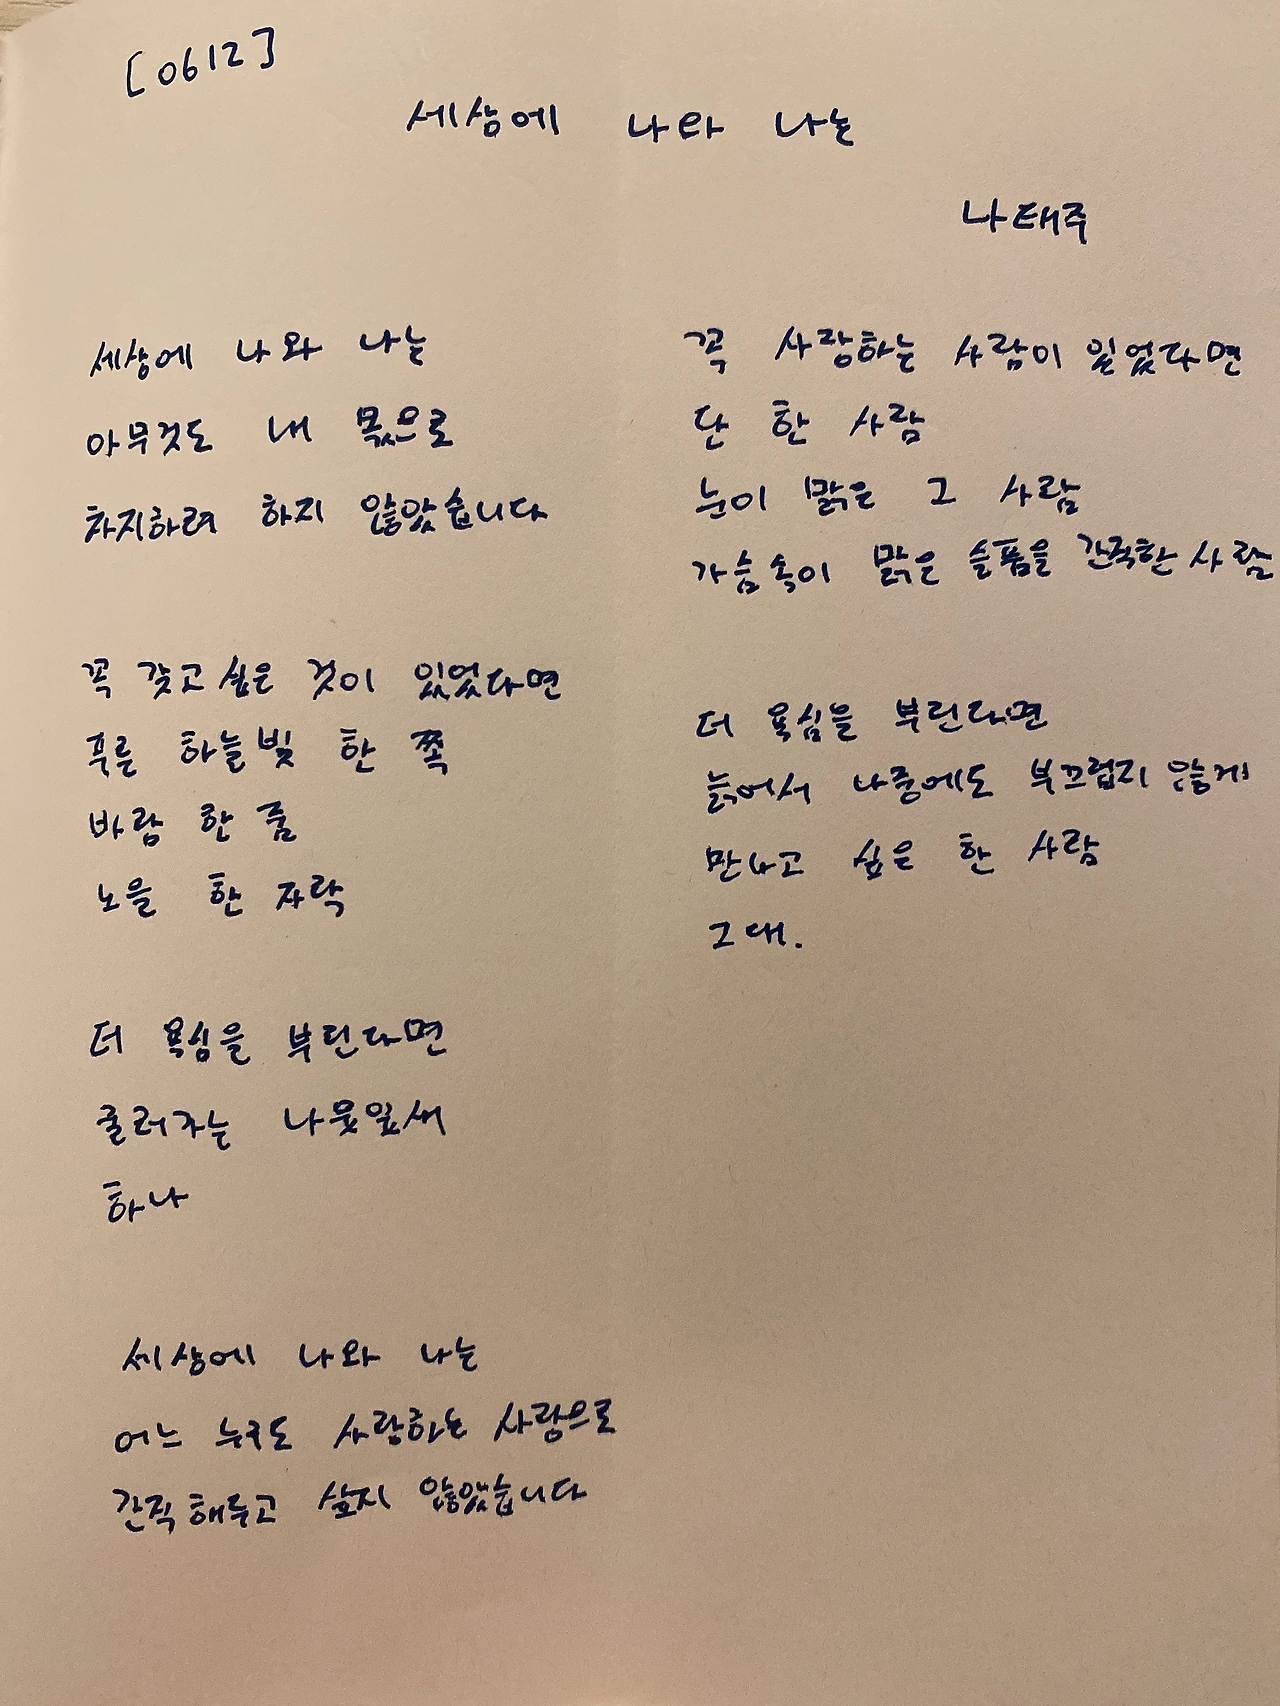 [0612]
세상에 나와 나는
나태주
세상에 나와 나는
아무것도 내 몫으로
차지하려 하지 않았습니다
꼭 갖고 싶은 것이 있었다면
푸른 하늘빛 한 쪽
바람 한 줌
노을 한 자락
더 욕심을 부린다면
굴러가는 나뭇잎새
하나
세상에 나와 나는
어느 누구도 사랑하는 사람으로
간직해두고 싶지 않았습니다
꼭 사랑하는 사람이 있었다면
단 한 사람
눈이 맑은 그 사람
가슴속이 맑은 슬픔을 간직한 사람
더 욕심을 부린다면
늙어서 나중에도 부끄럽지 않게
만나고 싶은 한 사람
그대.